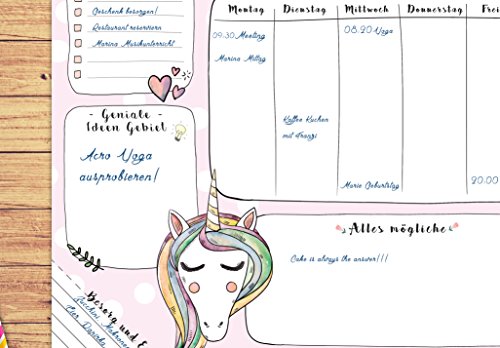 Geschenk besorgen!
Restaurant reservieren
Marina Musikunterricht
- Geniale -
Ideen Gebiet
Acro Yoga
ausprobieren!
Montag Dienstag Mittwoch Donnerstag Frei
09.30 Meeting
08.20 Yoga
Marina Mittag
Kaffee Kuchen
mit Franzi
Marie Geburtstag
20.00
Alles mögliche
Cake is always the answer!!!
Besorg und E
Zucchini,